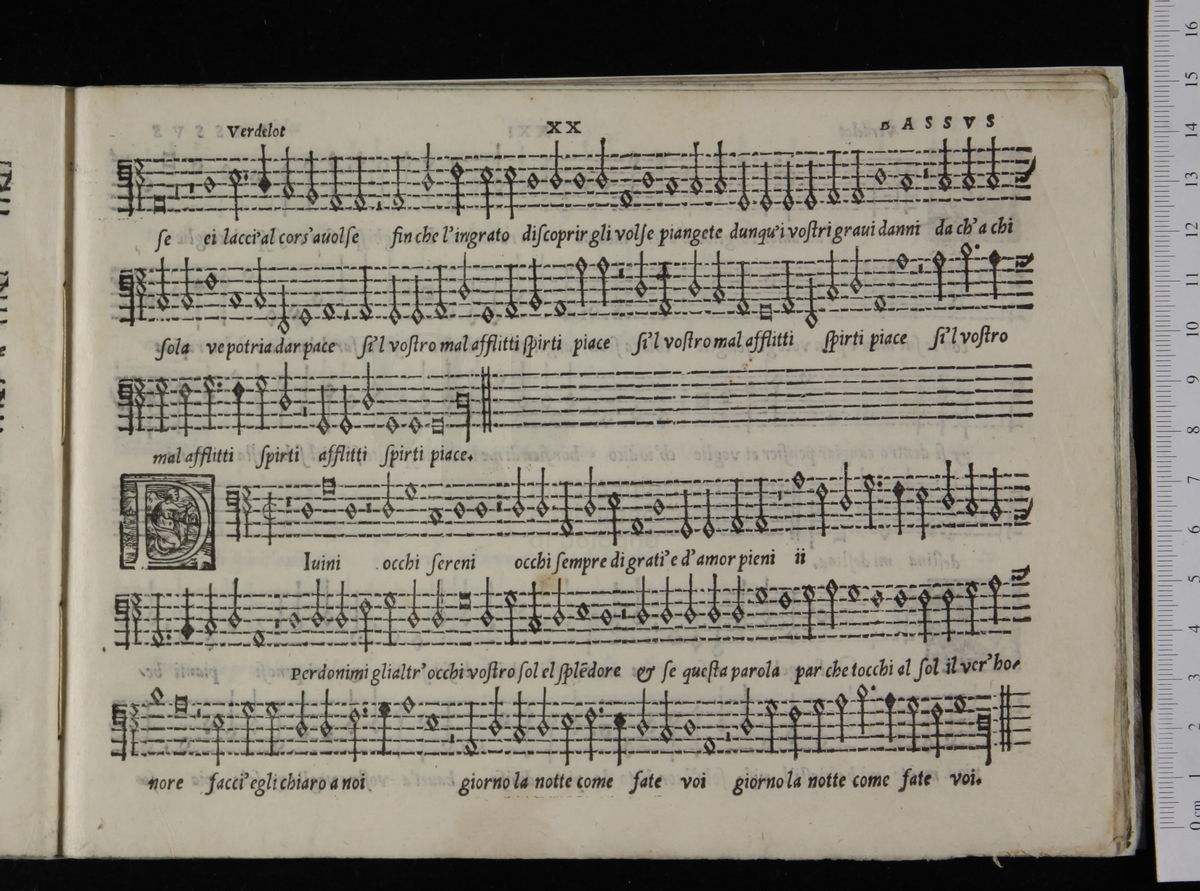 Verdelot XX BASSVS
se ei lacci'al cors'auolse fin che l'ingrato discoprir gli volse piangete dunqu'i vostri graui danni da ch'a chi
sola ve potria dar pace si'l vostro mal afflitti spirti piace si'l vostro mal afflitti spirti piace si'l vostro
mal afflitti spirti afflitti spirti piace.
DIuini occhi sereni occhi sempre di grati'e d'amor pieni ii
Perdonimi glialtr'occhi vostro sol el splēdore & se questa parola par che tocchi al sol il ver'ho-
nore facci'egli chiaro a noi giorno la notte come fate voi giorno la notte come fate voi.
16
15
14
13
12
11
10
9
8
7
6
5
4
3
2
1
0 cm